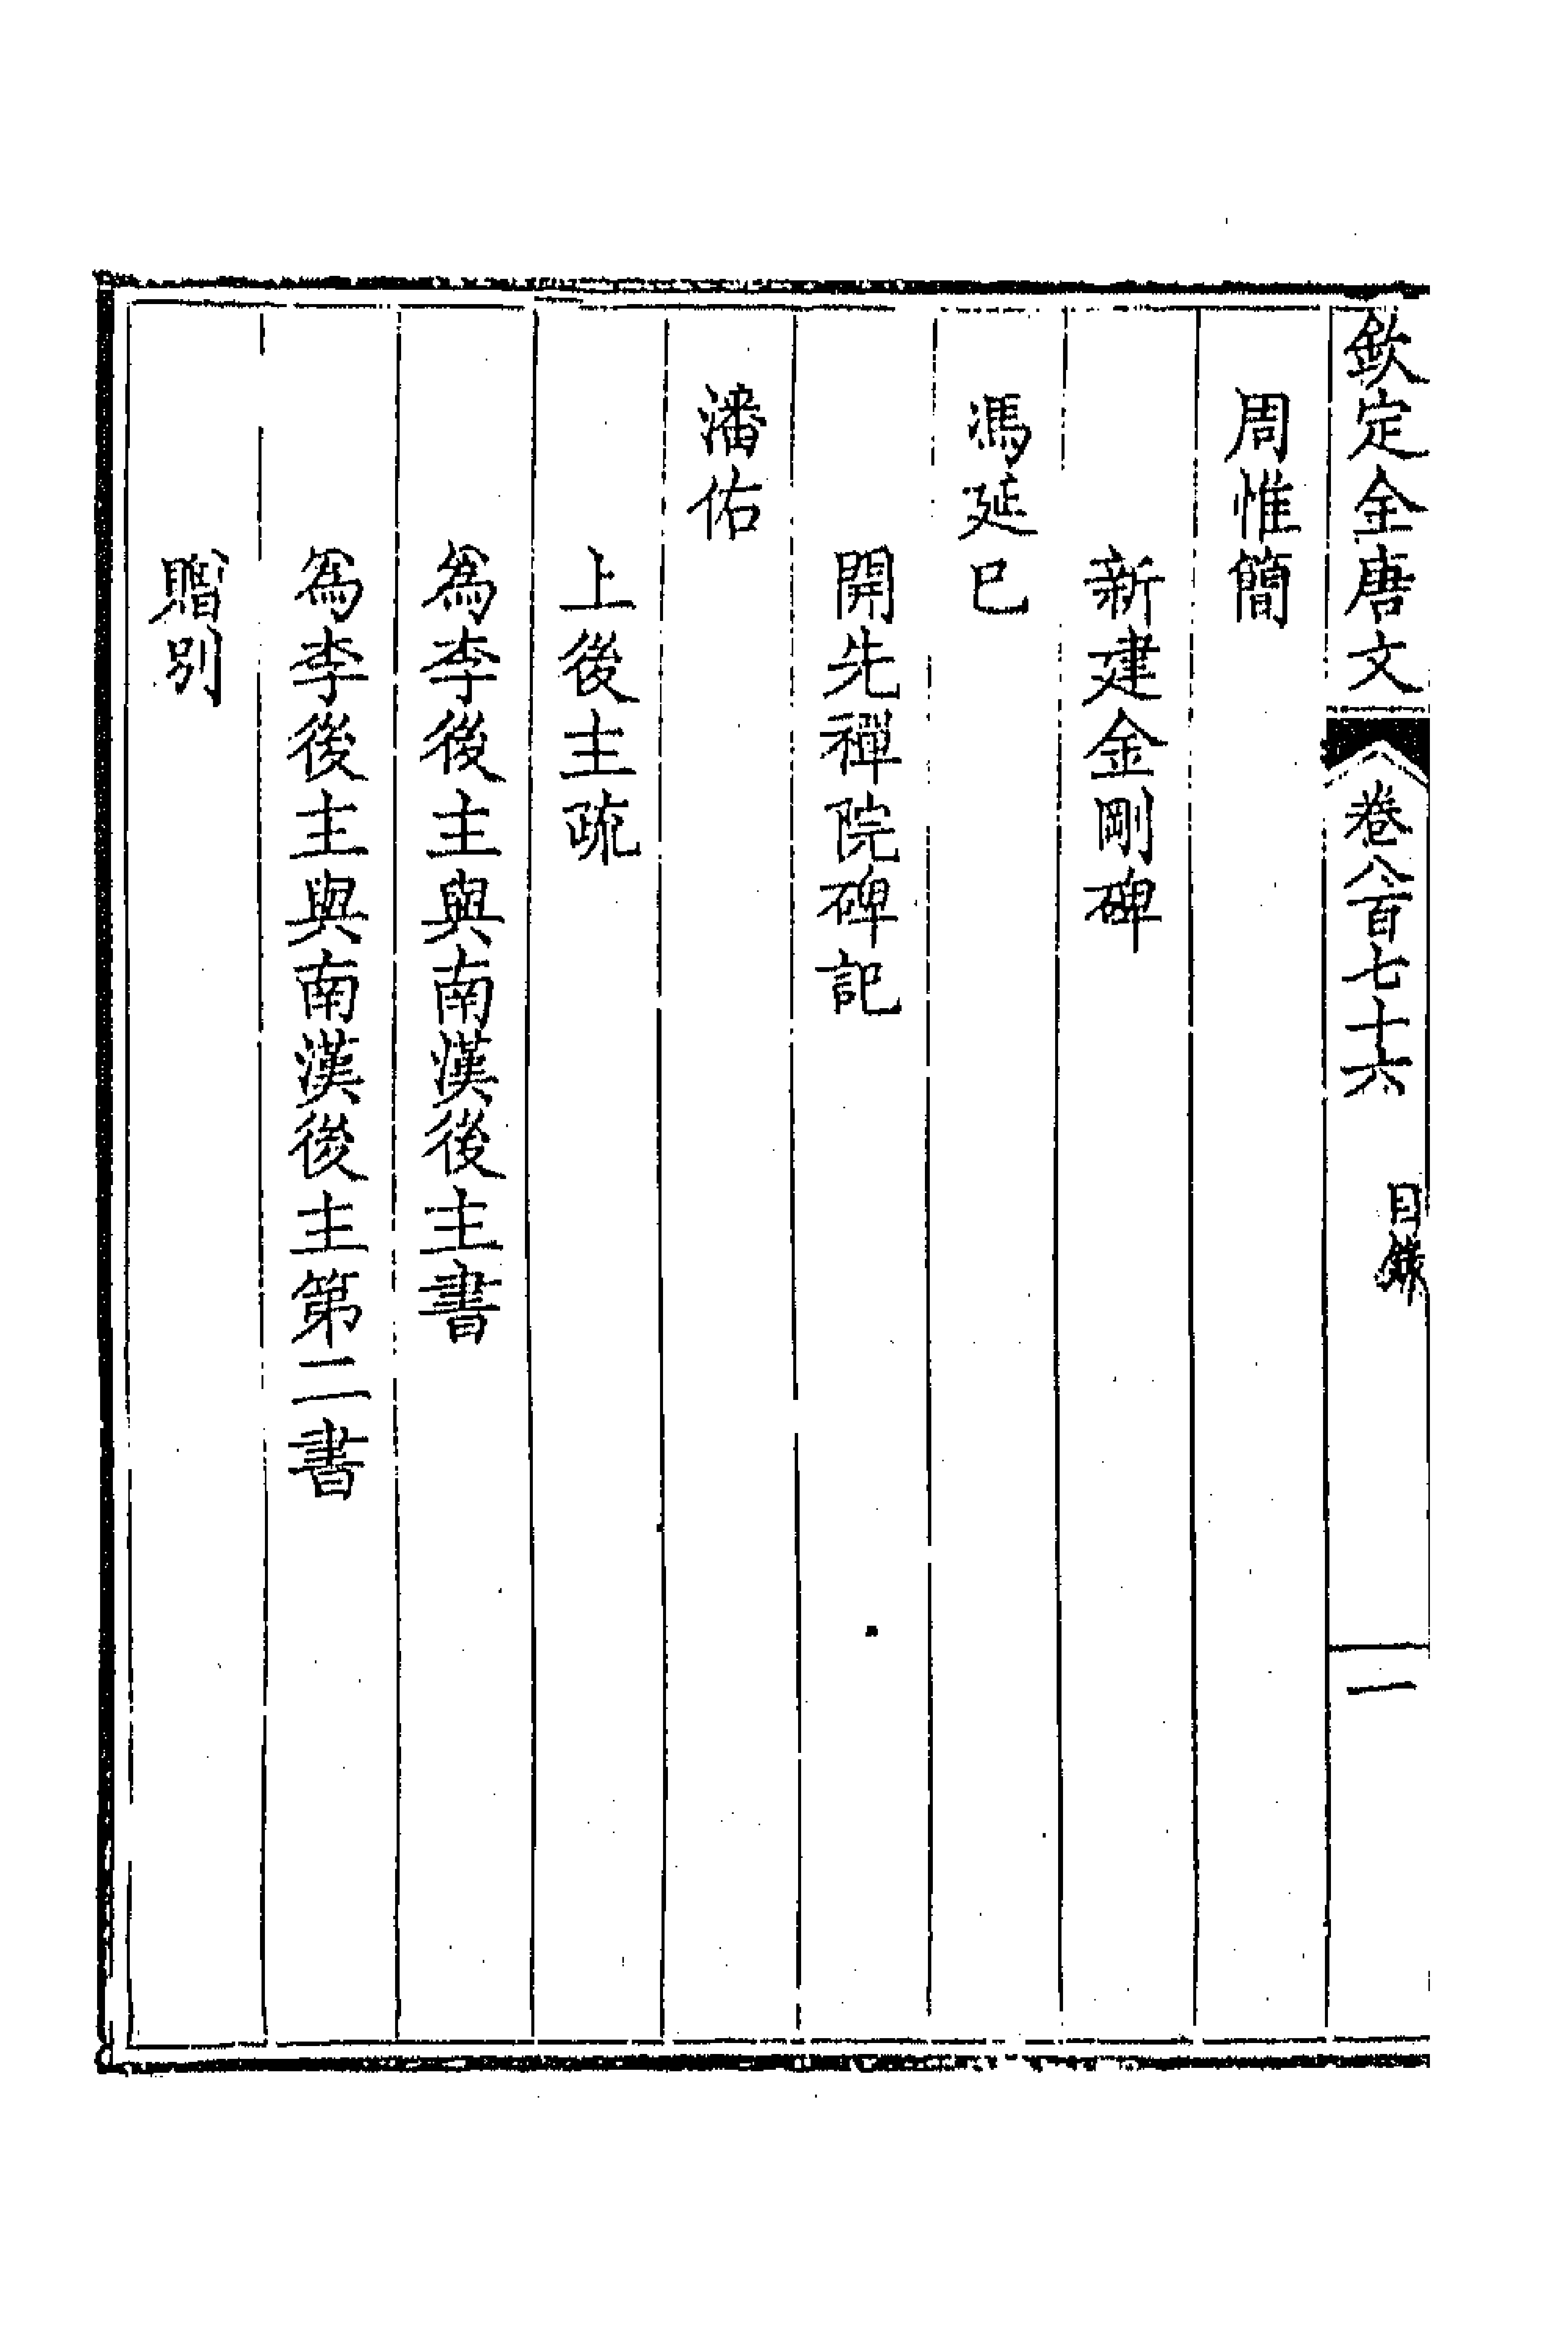 欽定全唐文
卷八百七十六
目錄
一
周惟簡
新建金剛碑
馮延巳
開先禪院碑記
潘佑
上後主疏
為李後主與南漢後主書
為李後主與南漢後主第二書
贈別